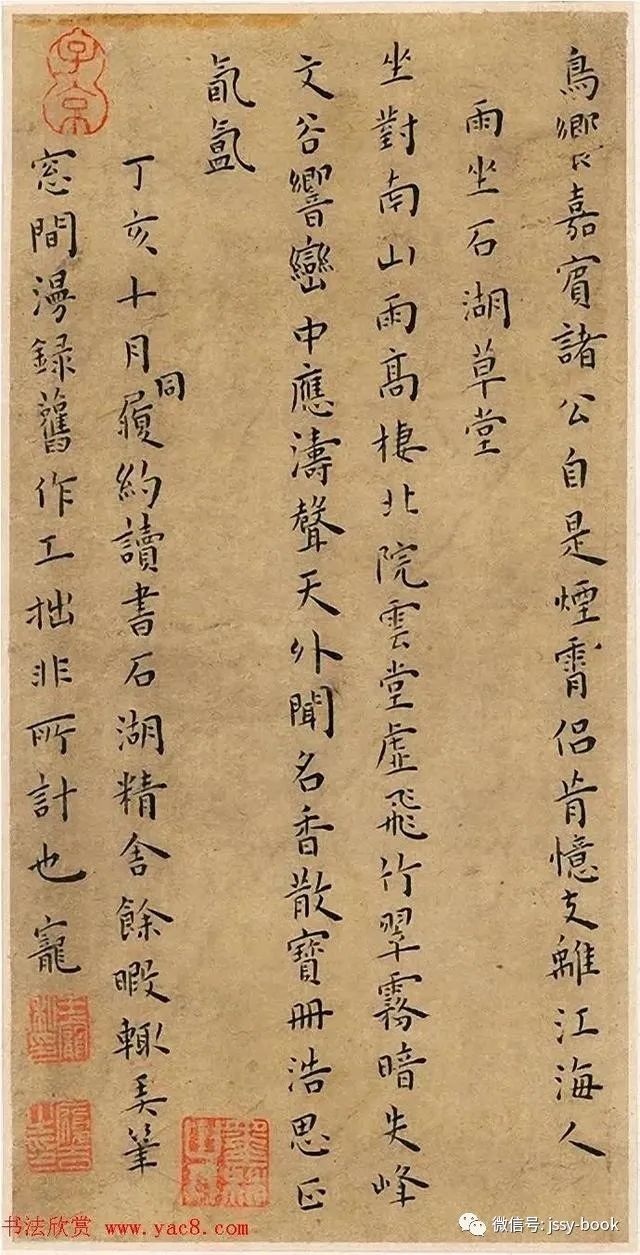 鳥嚮嘉賓諸公自是煙霄侶肯憶支離江海人
雨坐石湖草堂
坐對南山雨高棲北院雲堂虛飛竹翠霧暗失峰
文谷響巒中應濤聲天外聞名香散寶冊浩思正
氤氲
丁亥十月同履約讀書石湖精舍餘暇輒弄筆
窓間漫録舊作工拙非所計也寵
子京
书法欣赏 www.yac8.com
微信号: jssy-book